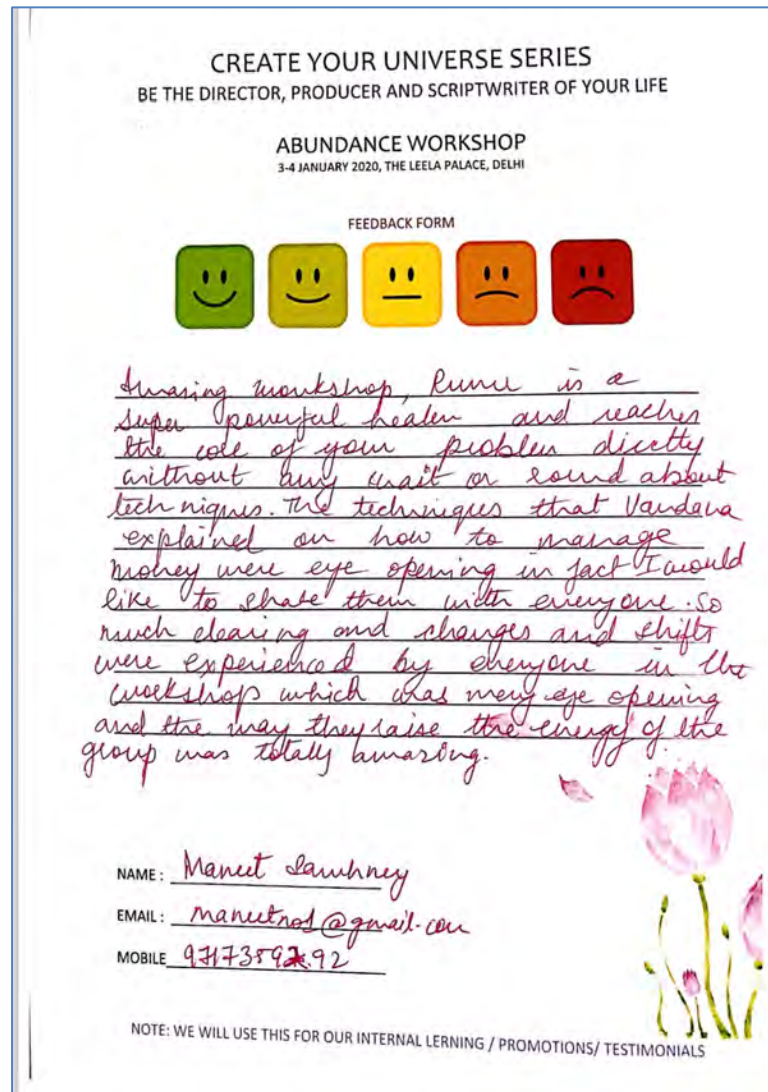 CREATE YOUR UNIVERSE SERIES
BE THE DIRECTOR, PRODUCER AND SCRIPTWRITER OF YOUR LIFE
ABUNDANCE WORKSHOP
3-4 JANUARY 2020, THE LEELA PALACE, DELHI
FEEDBACK FORM
Amazing workshop, is a
super powerful healer and reaches
the core of your problem directly
without any wait or round about
techniques. The techniques that Vandana
explained on how to manage
money were eye opening in fact I would
like to share them with everyone. So
much clearing and changes and shifts
were experienced by everyone in the
workshop which was very eye opening
and the way they raise the energy of the
group was totally amazing.
NAME : Maneet Sawhney
EMAIL : @gmail.com
MOBILE
NOTE: WE WILL USE THIS FOR OUR INTERNAL LERNING / PROMOTIONS/ TESTIMONIALS